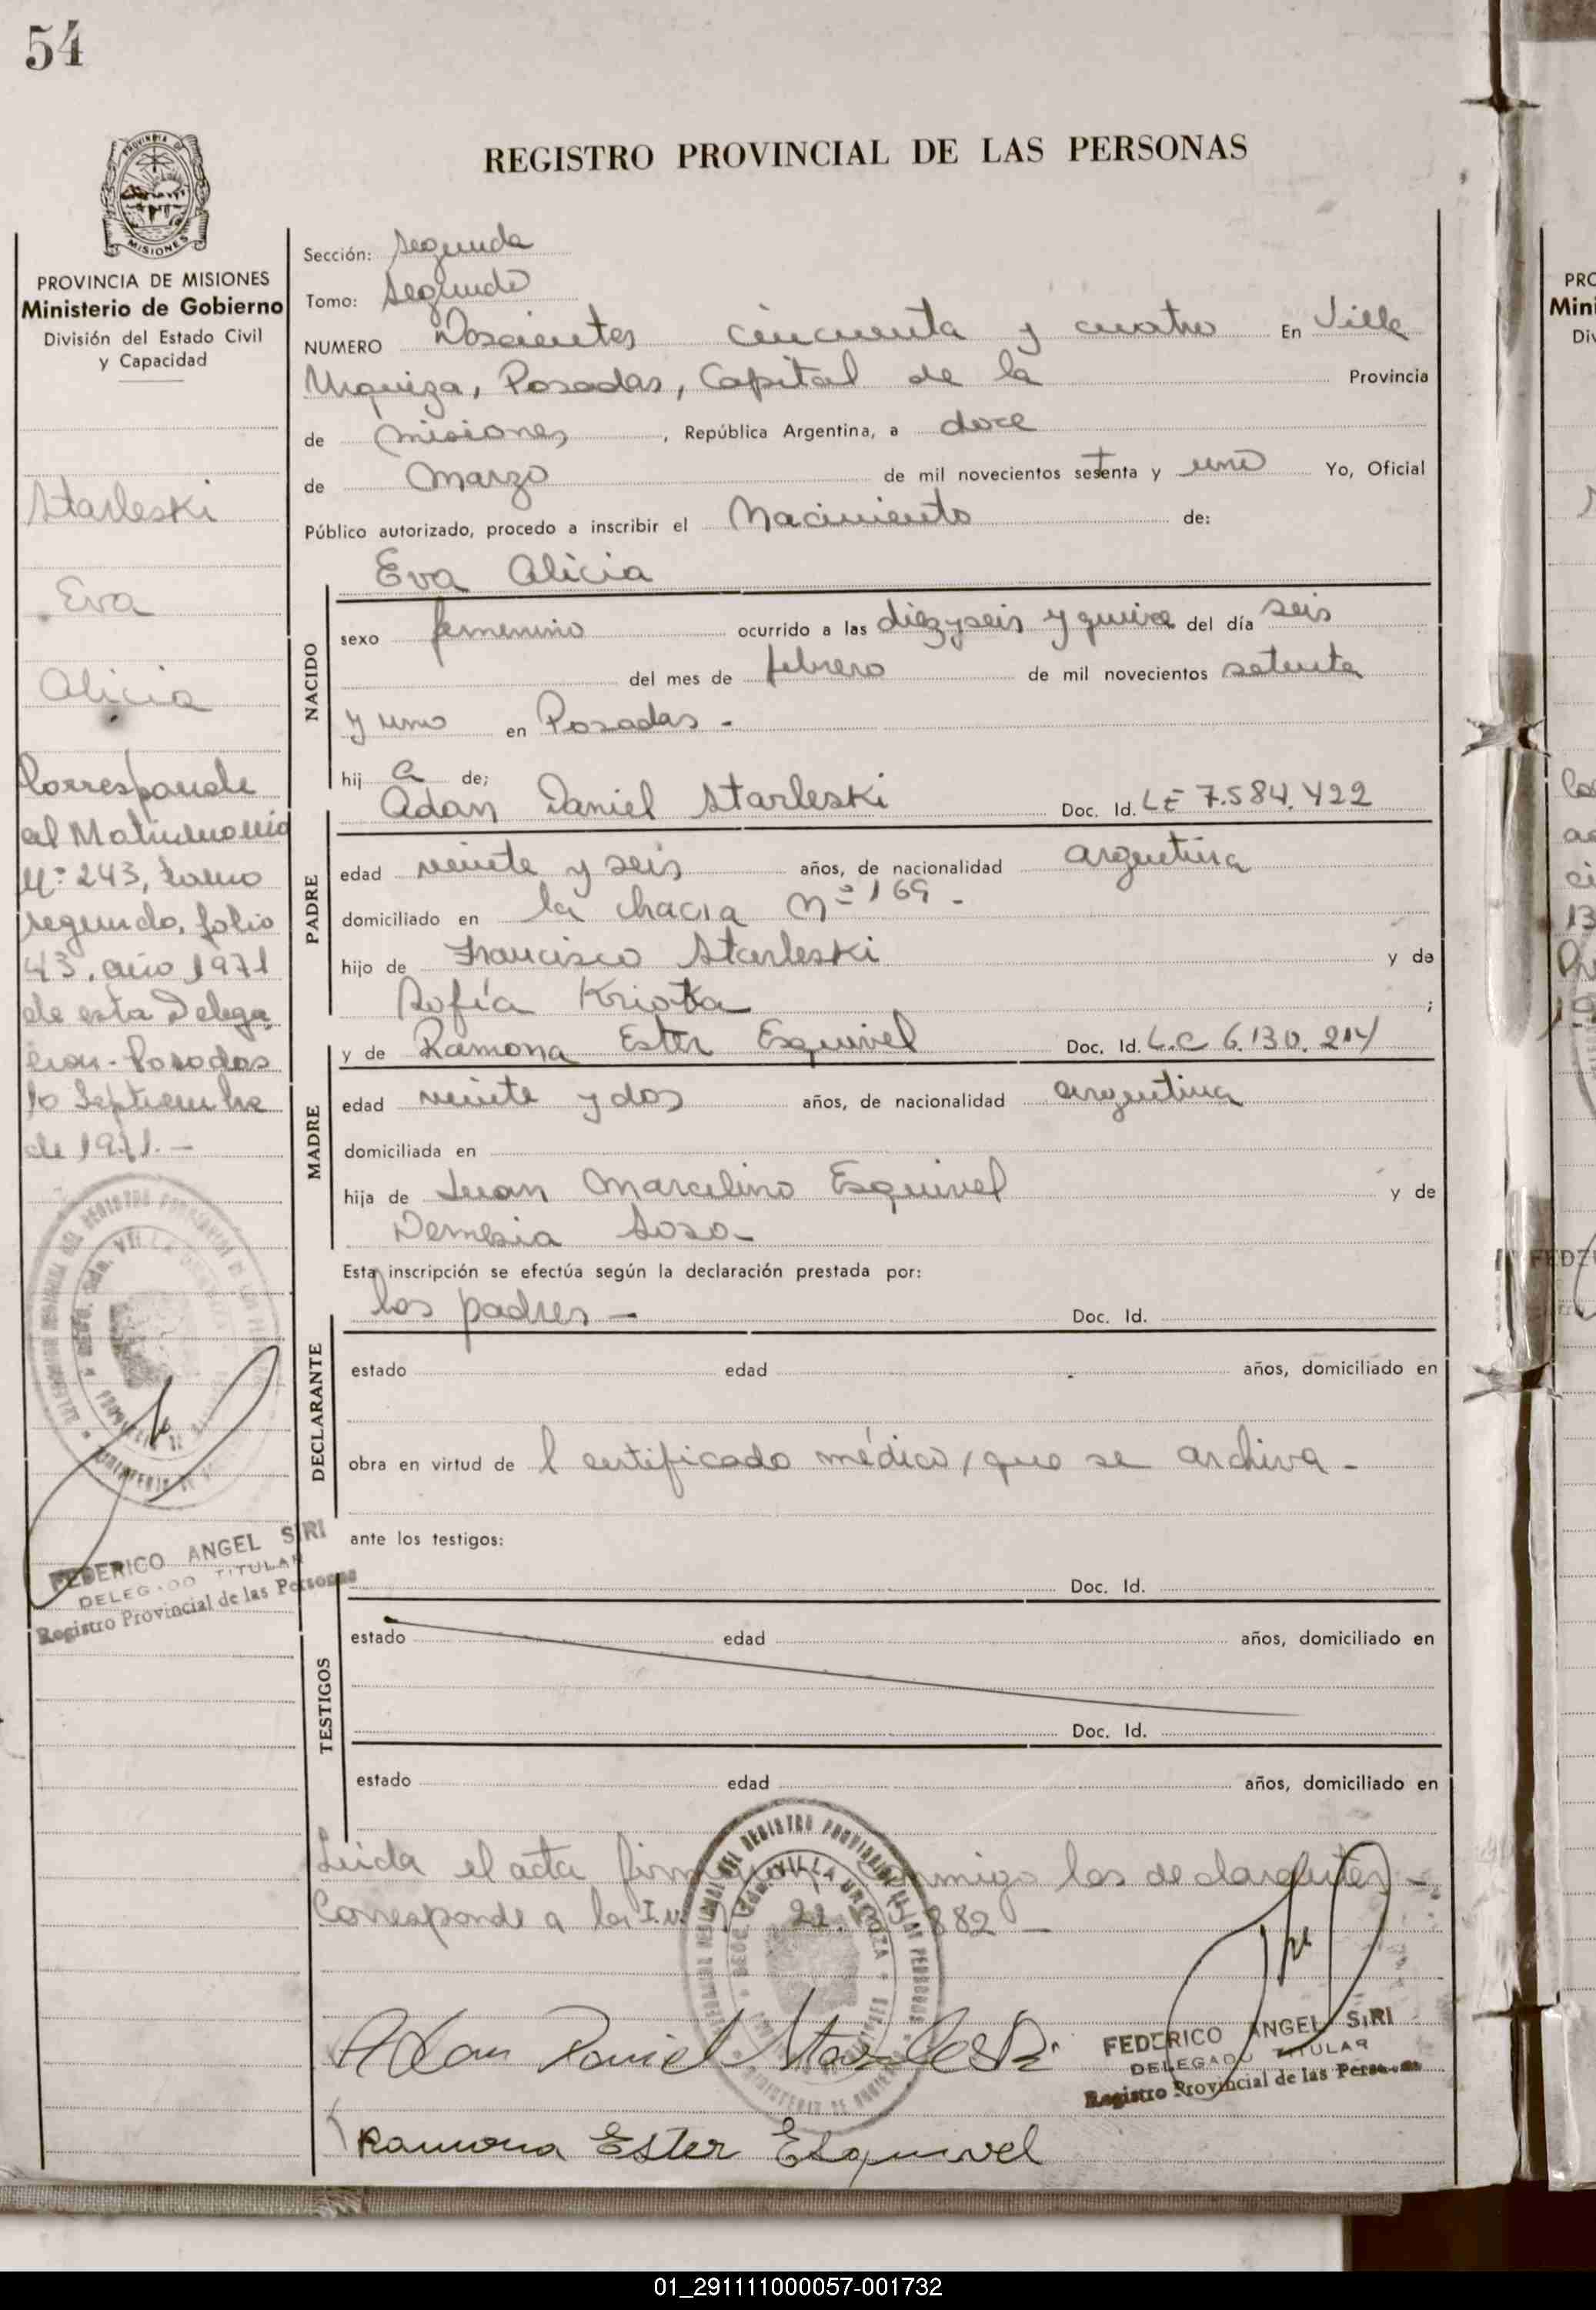 54
PROVINCIA DE
MISIONES
REGISTRO PROVINCIAL DE LAS PERSONAS
PROVINCIA DE MISIONES
Ministerio de Gobierno
División del Estado Civil
y Capacidad
Starleski
Eva
Alicia
Corresponde
al Matrimonio
Nº 243, tomo
segundo, folio
43, año 1971
de esta Delega
cion - Posadas
10 Septiembre
de 1971.-
FEDERICO ANGEL SIRI
DELEGADO TITULAR
Registro Provincial de las Personas
Sección: Segunda
Tomo: Segundo
NUMERO Doscientos cincuenta y cuatro En Villa
Urquiza, Posadas, Capital de la Provincia
de Misiones, República Argentina, a doce
de Marzo de mil novecientos setenta y uno Yo, Oficial
Público autorizado, procedo a inscribir el Nacimiento de:
Eva Alicia
NACIDO
sexo femenino ocurrido a las diez y seis y quince del día seis
del mes de febrero de mil novecientos setenta
y uno en Posadas -
hij a de;
Adan Daniel Starleski Doc. Id. LE 7.584.422
PADRE
edad veinte y seis años, de nacionalidad argentina
domiciliado en la chacra Nº 169 -
hijo de Francisco Starleski y de
Sofía Kriota ;
y de Ramona Ester Esquivel Doc. Id. L.C 6.130.214
MADRE
edad veinte y dos años, de nacionalidad argentina
domiciliada en
hija de Juan Marcelino Esquivel y de
Demesia Soso -
Esta inscripción se efectúa según la declaración prestada por:
los padres - Doc. Id.
DECLARANTE
estado edad años, domiciliado en
obra en virtud de l certificado médico, que se archiva -
ante los testigos:
Doc. Id.
TESTIGOS
estado edad años, domiciliado en
Doc. Id.
estado edad años, domiciliado en
Leida el acta conmigo los declarantes -
Corresponde a la I.N. 882 -
Adan Daniel Starleski
FEDERICO ANGEL SIRI
DELEGADO TITULAR
Registro Provincial de las Personas
Ramona Ester Esquivel
PRO
Min
Div
01_291111000057-001732